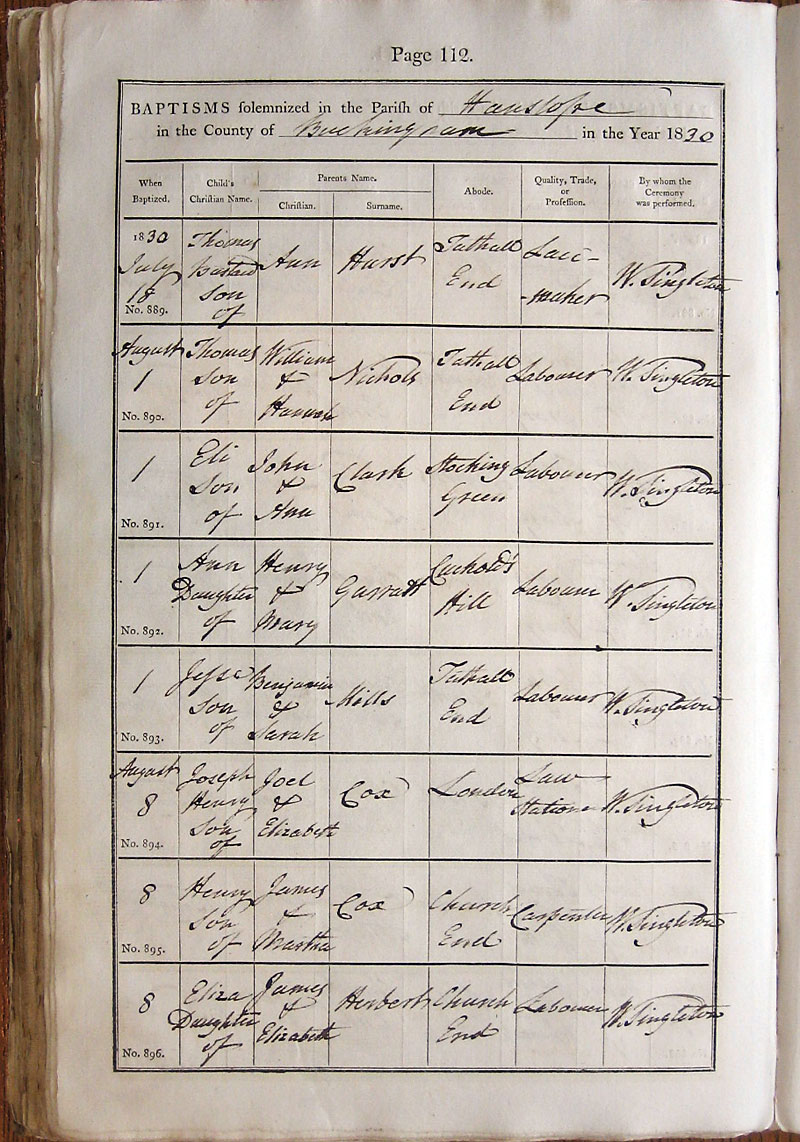 Page 112.
BAPTISMS solemnized in the Parish of Hanslope
in the County of Buckingham in the Year 1830
When Baptized. Child's Christian Name. Parents Name. Christian. Surname. Abode. Quality, Trade, or Profession. By whom the Ceremony was performed.
1830 July 18 No. 889. Thomas Bastard Son of Ann Hurst Tathall End Lace-maker W. Singleton
August 1 No. 890. Thomas Son of William & Hannah Nichols Tathall End Labourer W. Singleton
1 No. 891. Eli Son of John & Ann Clark Stocking Green Labourer W. Singleton
1 No. 892. Ann Daughter of Henry & Mary Garratt Cuckold's Hill Labourer W. Singleton
1 No. 893. Jesse Son of Benjamin & Sarah Mills Tathall End Labourer W. Singleton
August 8 No. 894. Joseph Henry Son of Joel & Elizabeth Cox London Law Stationer W. Singleton
8 No. 895. Henry Son of James & Martha Cox Church End Carpenter W. Singleton
8 No. 896. Eliza Daughter of James & Elizabeth Herbert Church End Labourer W. Singleton